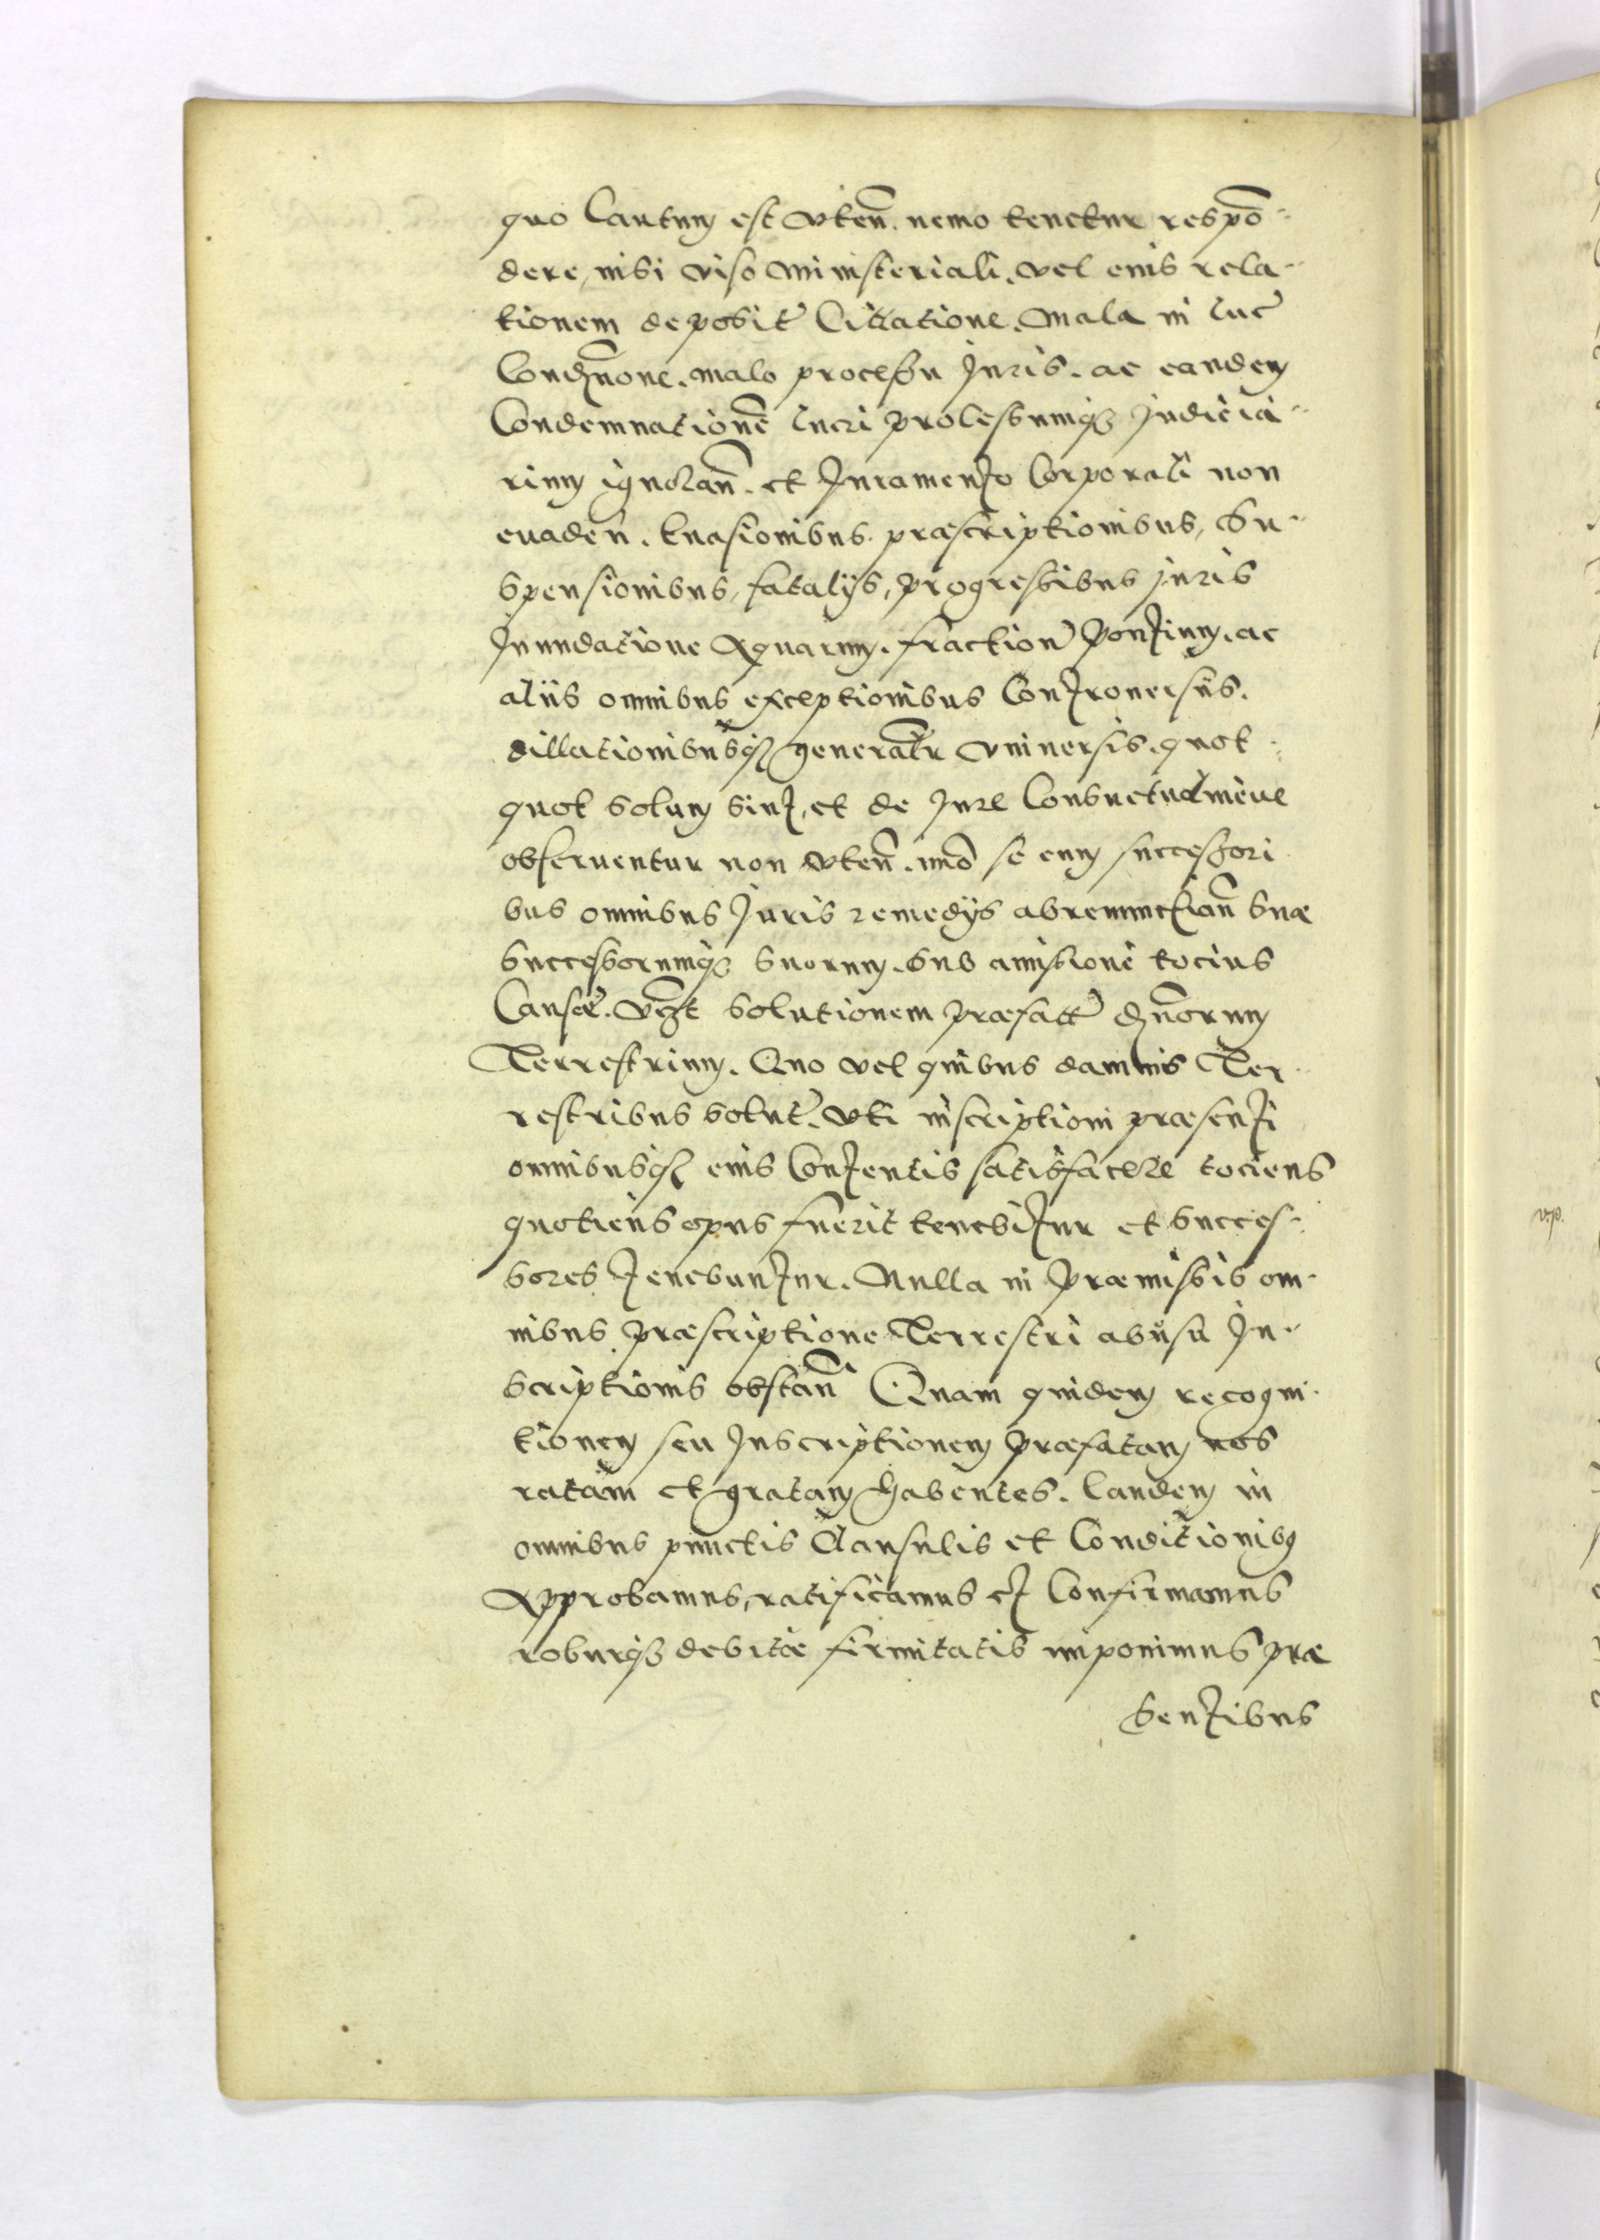 quo Cautum est vten̄. nemo tenetur respō-
dere, nisi viso Ministeriali. vel eius rela-
tionem deposit̄ Cittatione. Mala in luc̄
Condn̄one. malo processu Juris. ac eandem
Condemnationē lucri processumq₃ Judicia-
rium ignoran̄. et Juramento Corporali non
euaden̄. Euasionibus. præscriptionibus, Su-
spensionibus, fatalijs, progressibus juris
Jnundatione Aquarum. fraction̄ Pontium. ac
aliis omnibus exceptionibus Controuersiis.
dillationibusq₃ generalr̄ vniuersis. quot-
quot solum sint, et de Jure Consuetudineue
obseruentur non vten̄. imō se cum successori
bus omnibus Juris remedijs abrenunctian̄ Suæ
Successorumq₃ suorum. Sub amissione tocius
Causæ. vꝫt solutionem præfatt̄ dn̄orum
Terrestrium. Quo vel quibus damnis Ter-
restribus solut̄. vti inscriptioni præsenti
omnibusq₃ eius Contentis satisfacere tociens
quotiens opus fuerit tenebitur et Succes-
sores tenebuntur. Nulla in Præmissis om-
nibus præscriptione Terrestri abusu In-
scriptionis obstan̄ Quam quidem recogni-
tionem seu Inscriptionem Præfatam nos
ratam et gratam habentes. Eandem in
omnibus punctis Clausulis et Conditionibꝰ
Approbamus, ratificamus et Confirmamus
roburq₃ debitæ firmitatis imponimus præ
Sentibus
vp.